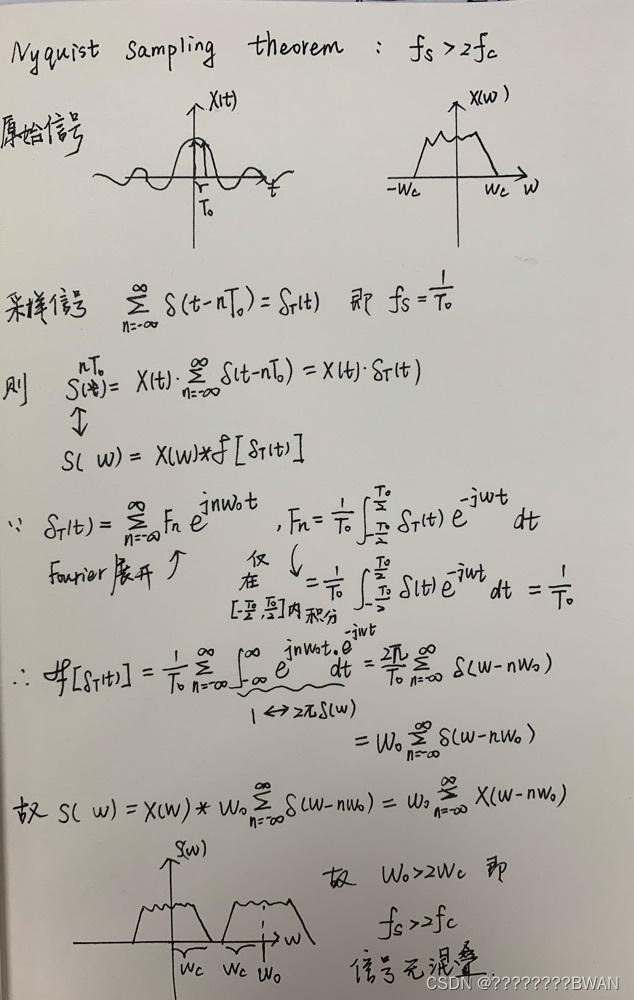 Nyquist Sampling theorem : fs>2fc
原始信号
X(t)
t
T₀
X(w)
-Wc
Wc
w
采样信号 ∑_{n=-∞}^{∞} δ(t-nT₀)=δ_T(t) 即 fs=1/T₀
nT₀
则 S(t)= X(t)·∑_{n=-∞}^{∞} δ(t-nT₀)=X(t)·δ_T(t)
↕
S( w)=X(w)*f[δ_T(t)]
∵ δ_T(t)=∑_{n=-∞}^{∞} Fn e^{jnw₀t} ,Fn=1/T₀ ∫_{-T₀/2}^{T₀/2} δ_T(t) e^{-jwt} dt
Fourier 展开 ↗
仅在[-T₀/2,T₀/2]内积分 ↓ =1/T₀ ∫_{-T₀/2}^{T₀/2} δ(t) e^{-jwt} dt = 1/T₀
∴ f[δ_T(t)] = 1/T₀ ∑_{n=-∞}^{∞} ∫_{-∞}^{∞} e^{jnw₀t}·e^{-jwt} dt = 2π/T₀ ∑_{n=-∞}^{∞} δ(w-nw₀)
1 ↔ 2πδ(w)
= W₀ ∑_{n=-∞}^{∞} δ(w-nw₀)
故 S( w)=X(w) * W₀ ∑_{n=-∞}^{∞} δ(w-nw₀)= W₀ ∑_{n=-∞}^{∞} X(w-nw₀)
S(w)
w
Wc
Wc
W₀
故 W₀>2Wc 即
fs>2fc
信号无混叠.
CSDN @????????BWAN